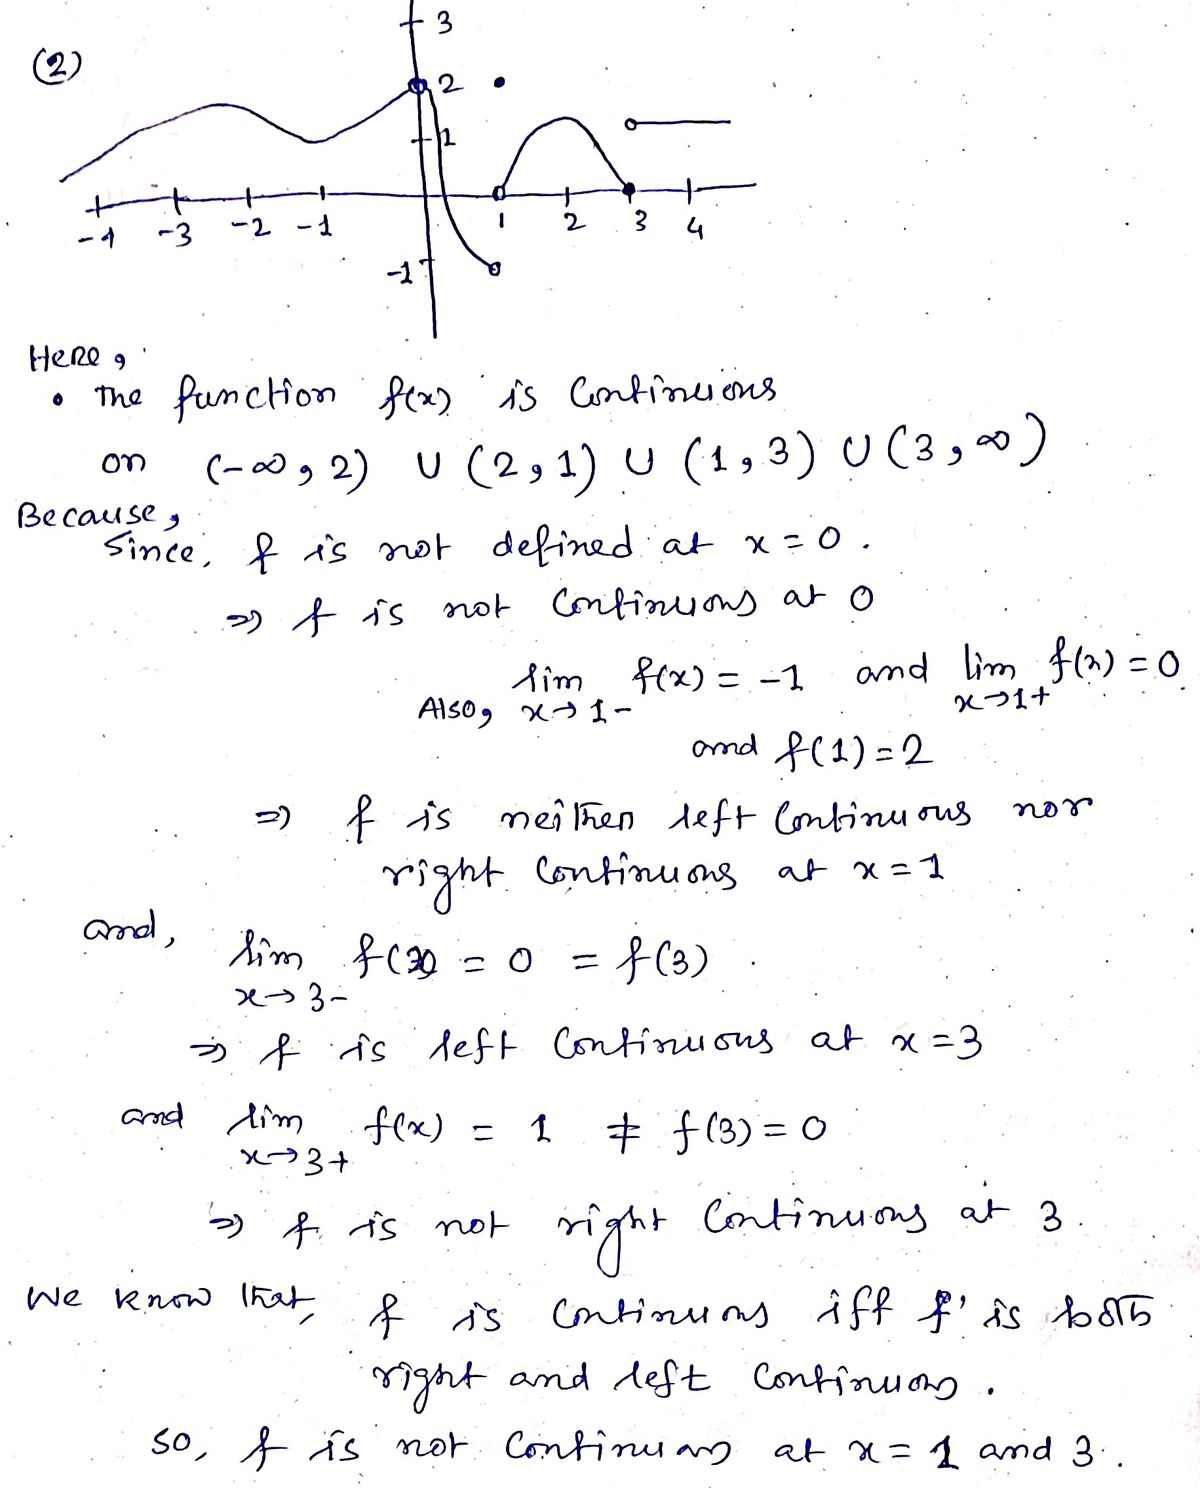 (2)
3
2
1
-4 -3 -2 -1 1 2 3 4
-1
Here,
• The function f(x) is continuous
on (-∞, 2) ∪ (2, 1) ∪ (1, 3) ∪ (3, ∞)
Because,
Since, f is not defined at x = 0.
⇒ f is not continuous at 0
Also, lim x→1- f(x) = -1 and lim x→1+ f(x) = 0
and f(1) = 2
⇒ f is neither left continuous nor
right continuous at x = 1
and, lim x→3- f(x) = 0 = f(3).
⇒ f is left continuous at x = 3
and lim x→3+ f(x) = 1 ≠ f(3) = 0
⇒ f is not right continuous at 3.
We know that, f is continuous iff f is both
right and left continuous.
So, f is not continuous at x = 1 and 3.